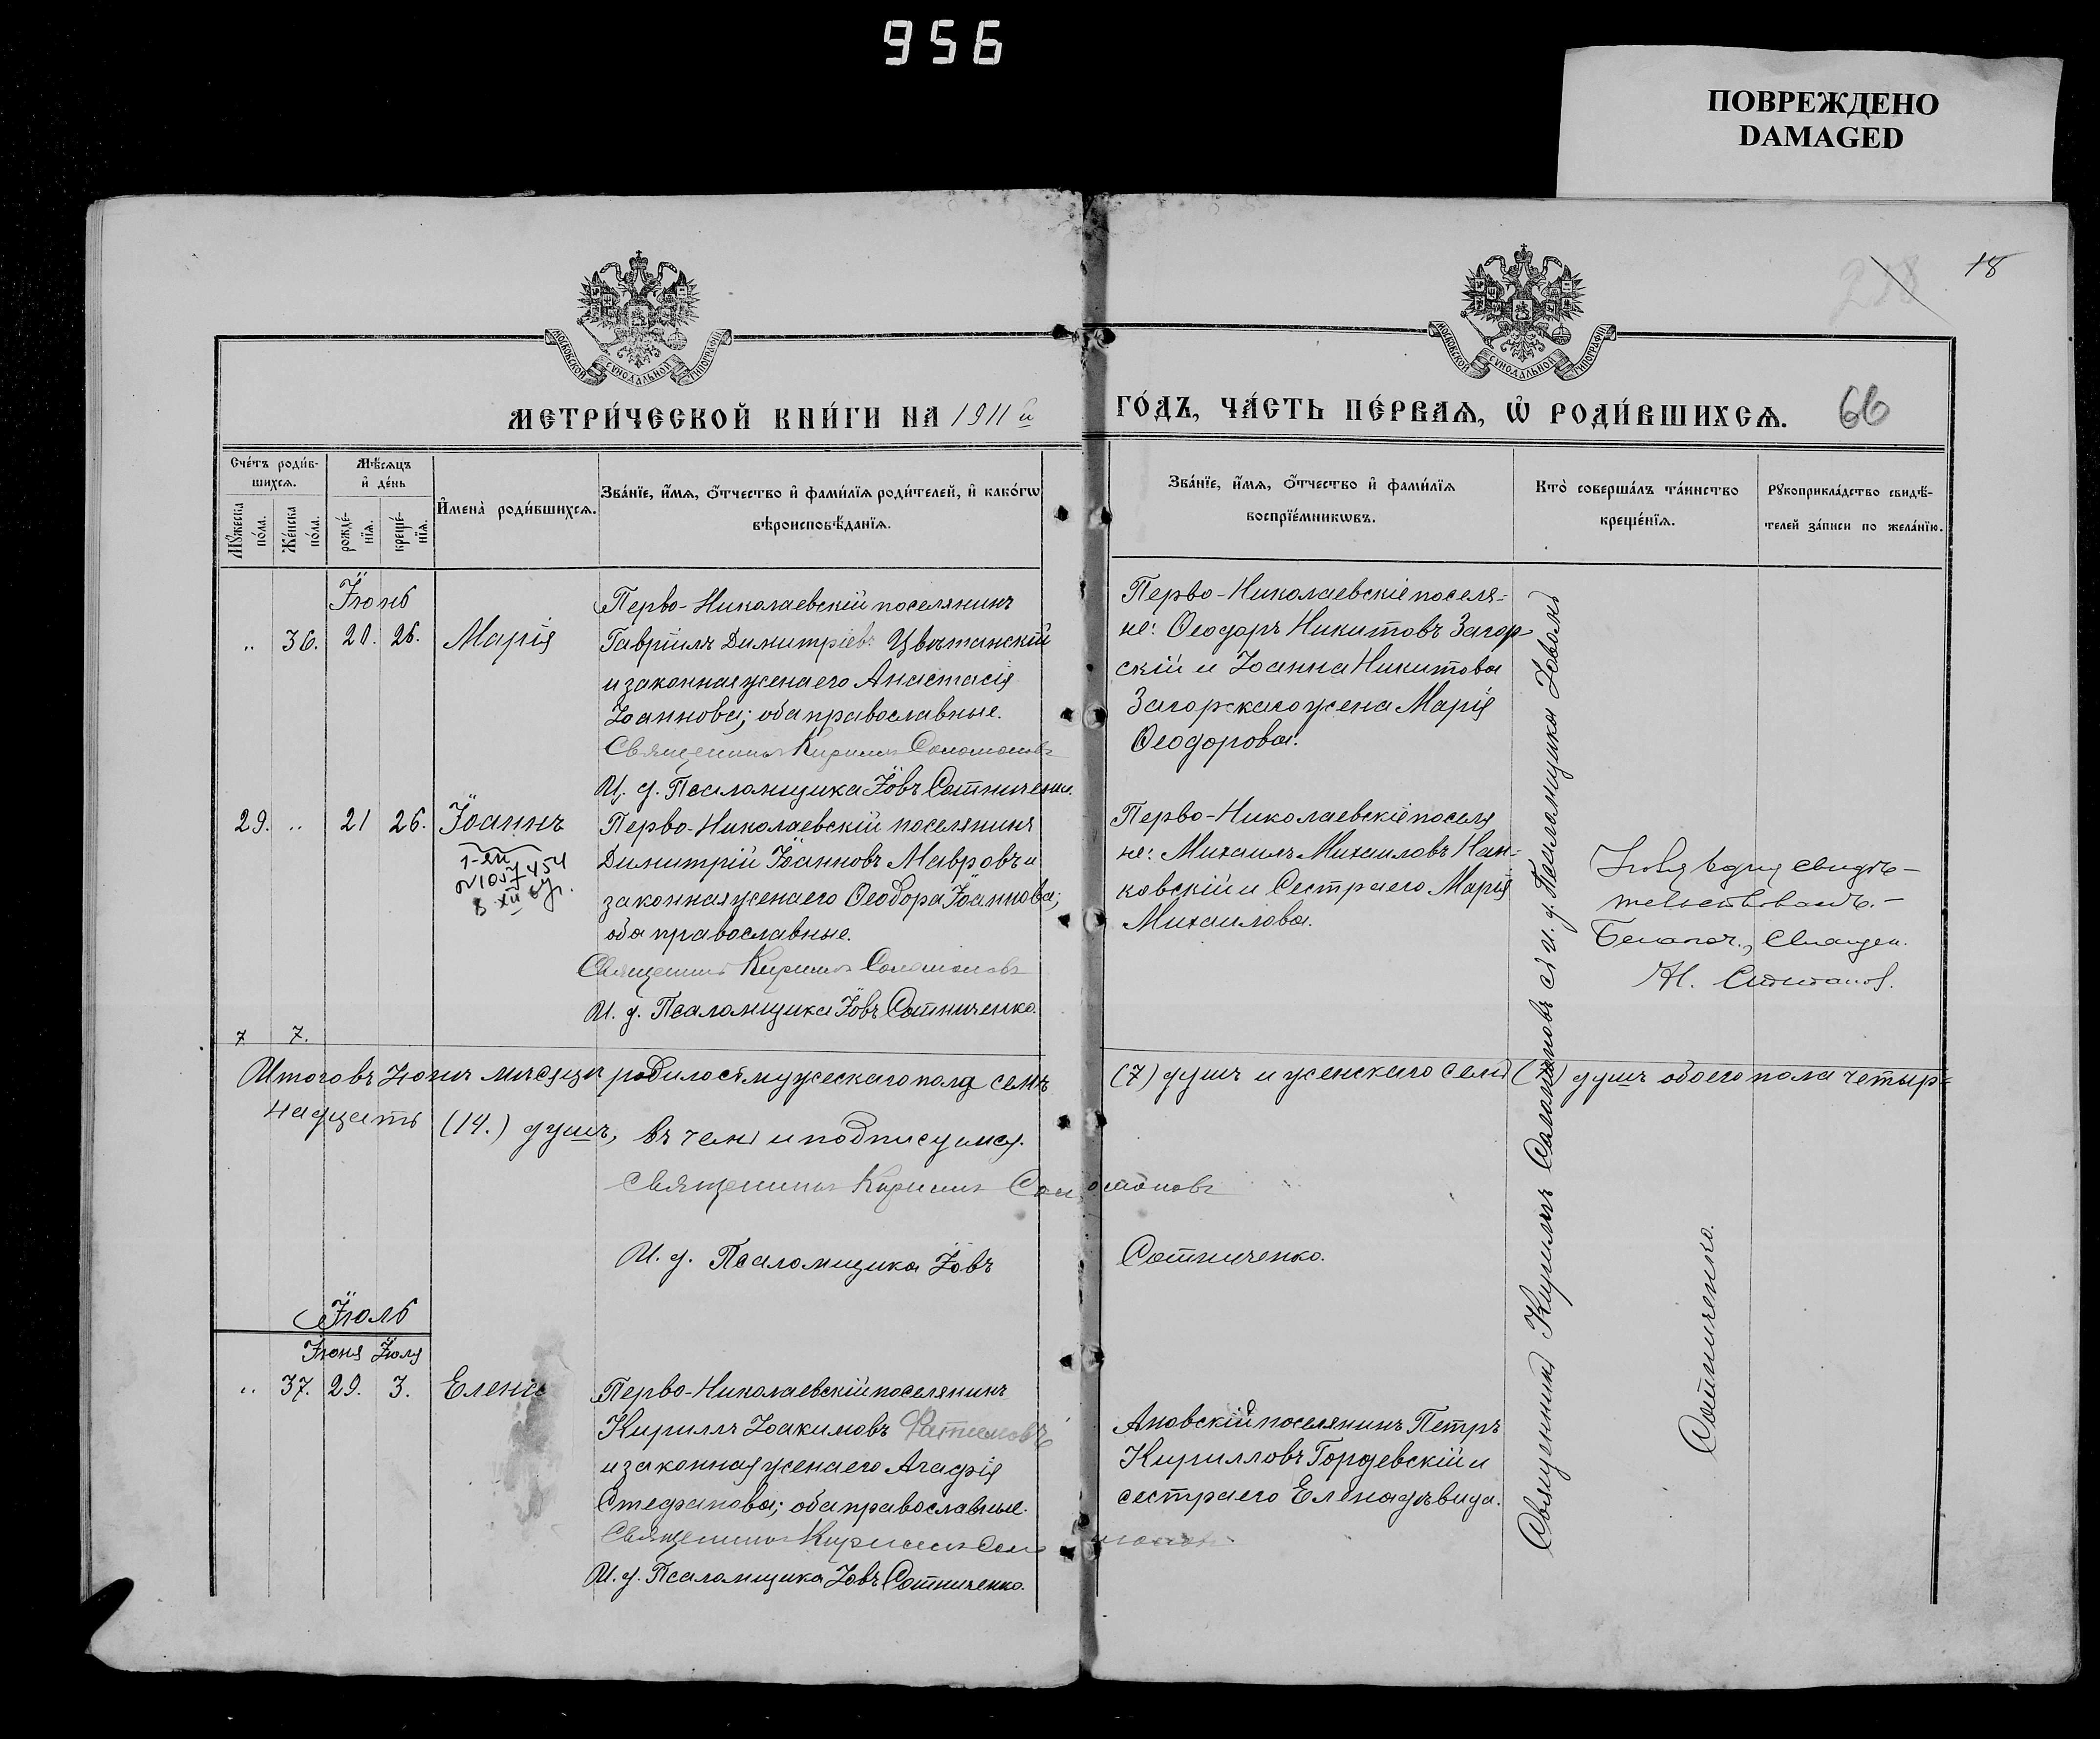 956
ПОВРЕЖДЕНО
DAMAGED
18
66
МОСКОВСКОЙ СѴНОДАЛЬНОЙ ТИПОГРАФІИ
МОСКОВСКОЙ СѴНОДАЛЬНОЙ ТИПОГРАФІИ
МЕТРИ́ЧЕСКОЙ КНИ́ГИ НА 1911 й
ГО́ДЪ, ЧА́СТЬ ПЕ́РВАѦ, Ѡ РОДИ́ВШИХСѦ.
Сче́тъ роди́в-
шихсѧ.
Мѣ́сѧцъ
и де́нь
Мꙋ́жеска
по́ла.
Же́нска
по́ла.
рожде́-
нїѧ.
креще́-
нїѧ.
Имена̀ роди́вшихсѧ.
Зва́нїе, и́мѧ, ѻ́тчество и фами́лїѧ роди́телей, и како́гѡ
вѣроисповѣ́данїѧ.
Зва́нїе, и́мѧ, ѻ́тчество и фами́лїѧ
воспрїе́мникѡвъ.
Кто̀ соверша́лъ та́инство
креще́нїѧ.
Рꙋкоприкла́дство свидѣ́-
телей за́писи по жела́нїю.
Іюнь
" 36. 20. 26. Марія
Перво-Николаевскій поселянинъ
Гавріилъ Димитріевъ Цвѣтанскій
и законная жена его Анастасія
Іоаннова; оба православные.
Священникъ Кириллъ Соломоновъ
И. д. Псаломщика Іовъ Сотниченко.
Перво-Николаевскіе поселя-
не: Ѳеодоръ Никитовъ Загор-
скій и Іоанна Никитова
Загорскаго жена Марія
Ѳеодорова.
29. " 21 26. Іоаннъ
8 XII
Перво-Николаевскій поселянинъ
Димитрій Іоанновъ Мавровъ и
законная жена его Ѳеодора Іоаннова;
оба православные.
Священникъ Кириллъ Соломоновъ
И. д. Псаломщика Іовъ Сотниченко.
Перво-Николаевскіе поселя
не: Михаилъ Михаиловъ Нан-
ковскій и Сестра его Марія
Михаилова.
7 7.
Итого въ Іюнѣ мѣсяцѣ родилось мужескаго пола семь (7) душъ и женскаго семь (7) душъ обоего пола четыр-
надцать (14.) душъ, въ чемъ и подписуемся.
Священникъ Кириллъ Соломоновъ
И. д. Псаломщика Іовъ Сотниченко.
Іюль
Іюня Іюля
" 37. 29. 3. Елена
Перво-Николаевскій поселянинъ
Кириллъ Іоакимовъ
и законная жена его Агафія
Стефанова; оба православные.
Священникъ Кириллъ Соломоновъ
И. д. Псаломщика Іовъ Сотниченко.
поселянинъ Петръ
Кирилловъ Гордевскій и
сестра его Елена дѣвица.
Священникъ Кириллъ Соломоновъ съ и. д. Псаломщика Іовомъ
Сотниченко.